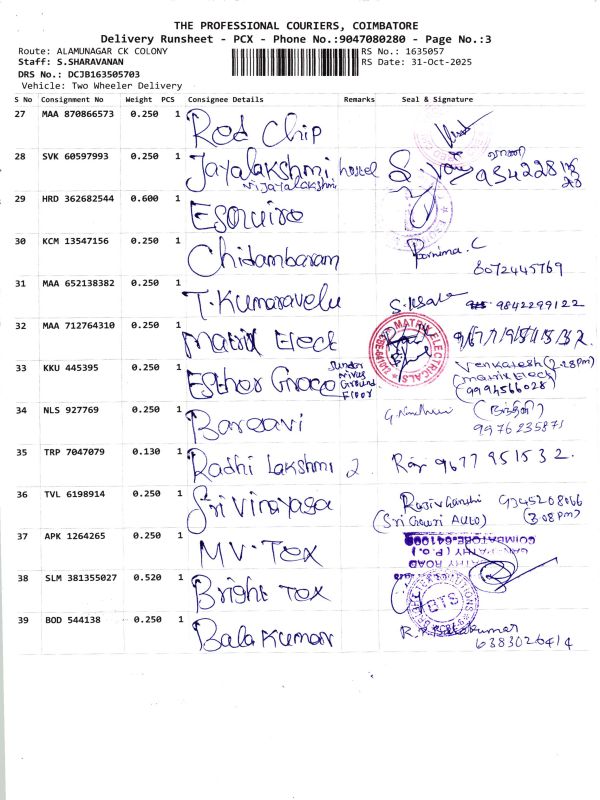 THE PROFESSIONAL COURIERS, COIMBATORE
Delivery Runsheet - PCX - Phone No.:9047080280 - Page No.:3
Route: ALAMUNAGAR CK COLONY RS No.: 1635057
Staff: S.SHARAVANAN RS Date: 31-Oct-2025
DRS No.: DCJB163505703
Vehicle: Two Wheeler Delivery
S No Consignment No Weight PCS Consignee Details Remarks Seal & Signature
27 MAA 870866573 0.250 1 Red Chip
28 SVK 60597993 0.250 1 Jayalakshmi hostel
vijayalakshmi
29 HRD 362682544 0.600 1 Esquire
30 KCM 13547156 0.250 1 Chidambaram Pornima. C
8072445769
31 MAA 652138382 0.250 1 T. Kumaravelu 9842299122
32 MAA 712764310 0.250 1 Matrix Elect MATRIX ELECTRICALS
33 KKU 445395 0.250 1 Esther Grace Under Ground Floor Venkatesh (2.28pm)
(Matrix Elect)
(9994566028)
34 NLS 927769 0.250 1 Bargavi
9976235871
35 TRP 7047079 0.130 1 Radhi Lakshmi 2. 9677951532.
36 TVL 6198914 0.250 1 Sri Vinayaga 9345208066
(Sri Gowri AUTO) (3.08pm)
37 APK 1264265 0.250 1 MV. Tex
COIMBATORE-641006
38 SLM 381355027 0.520 1 Bright Tex BTS
39 BOD 544138 0.250 1 Bala Kumar
6383026414